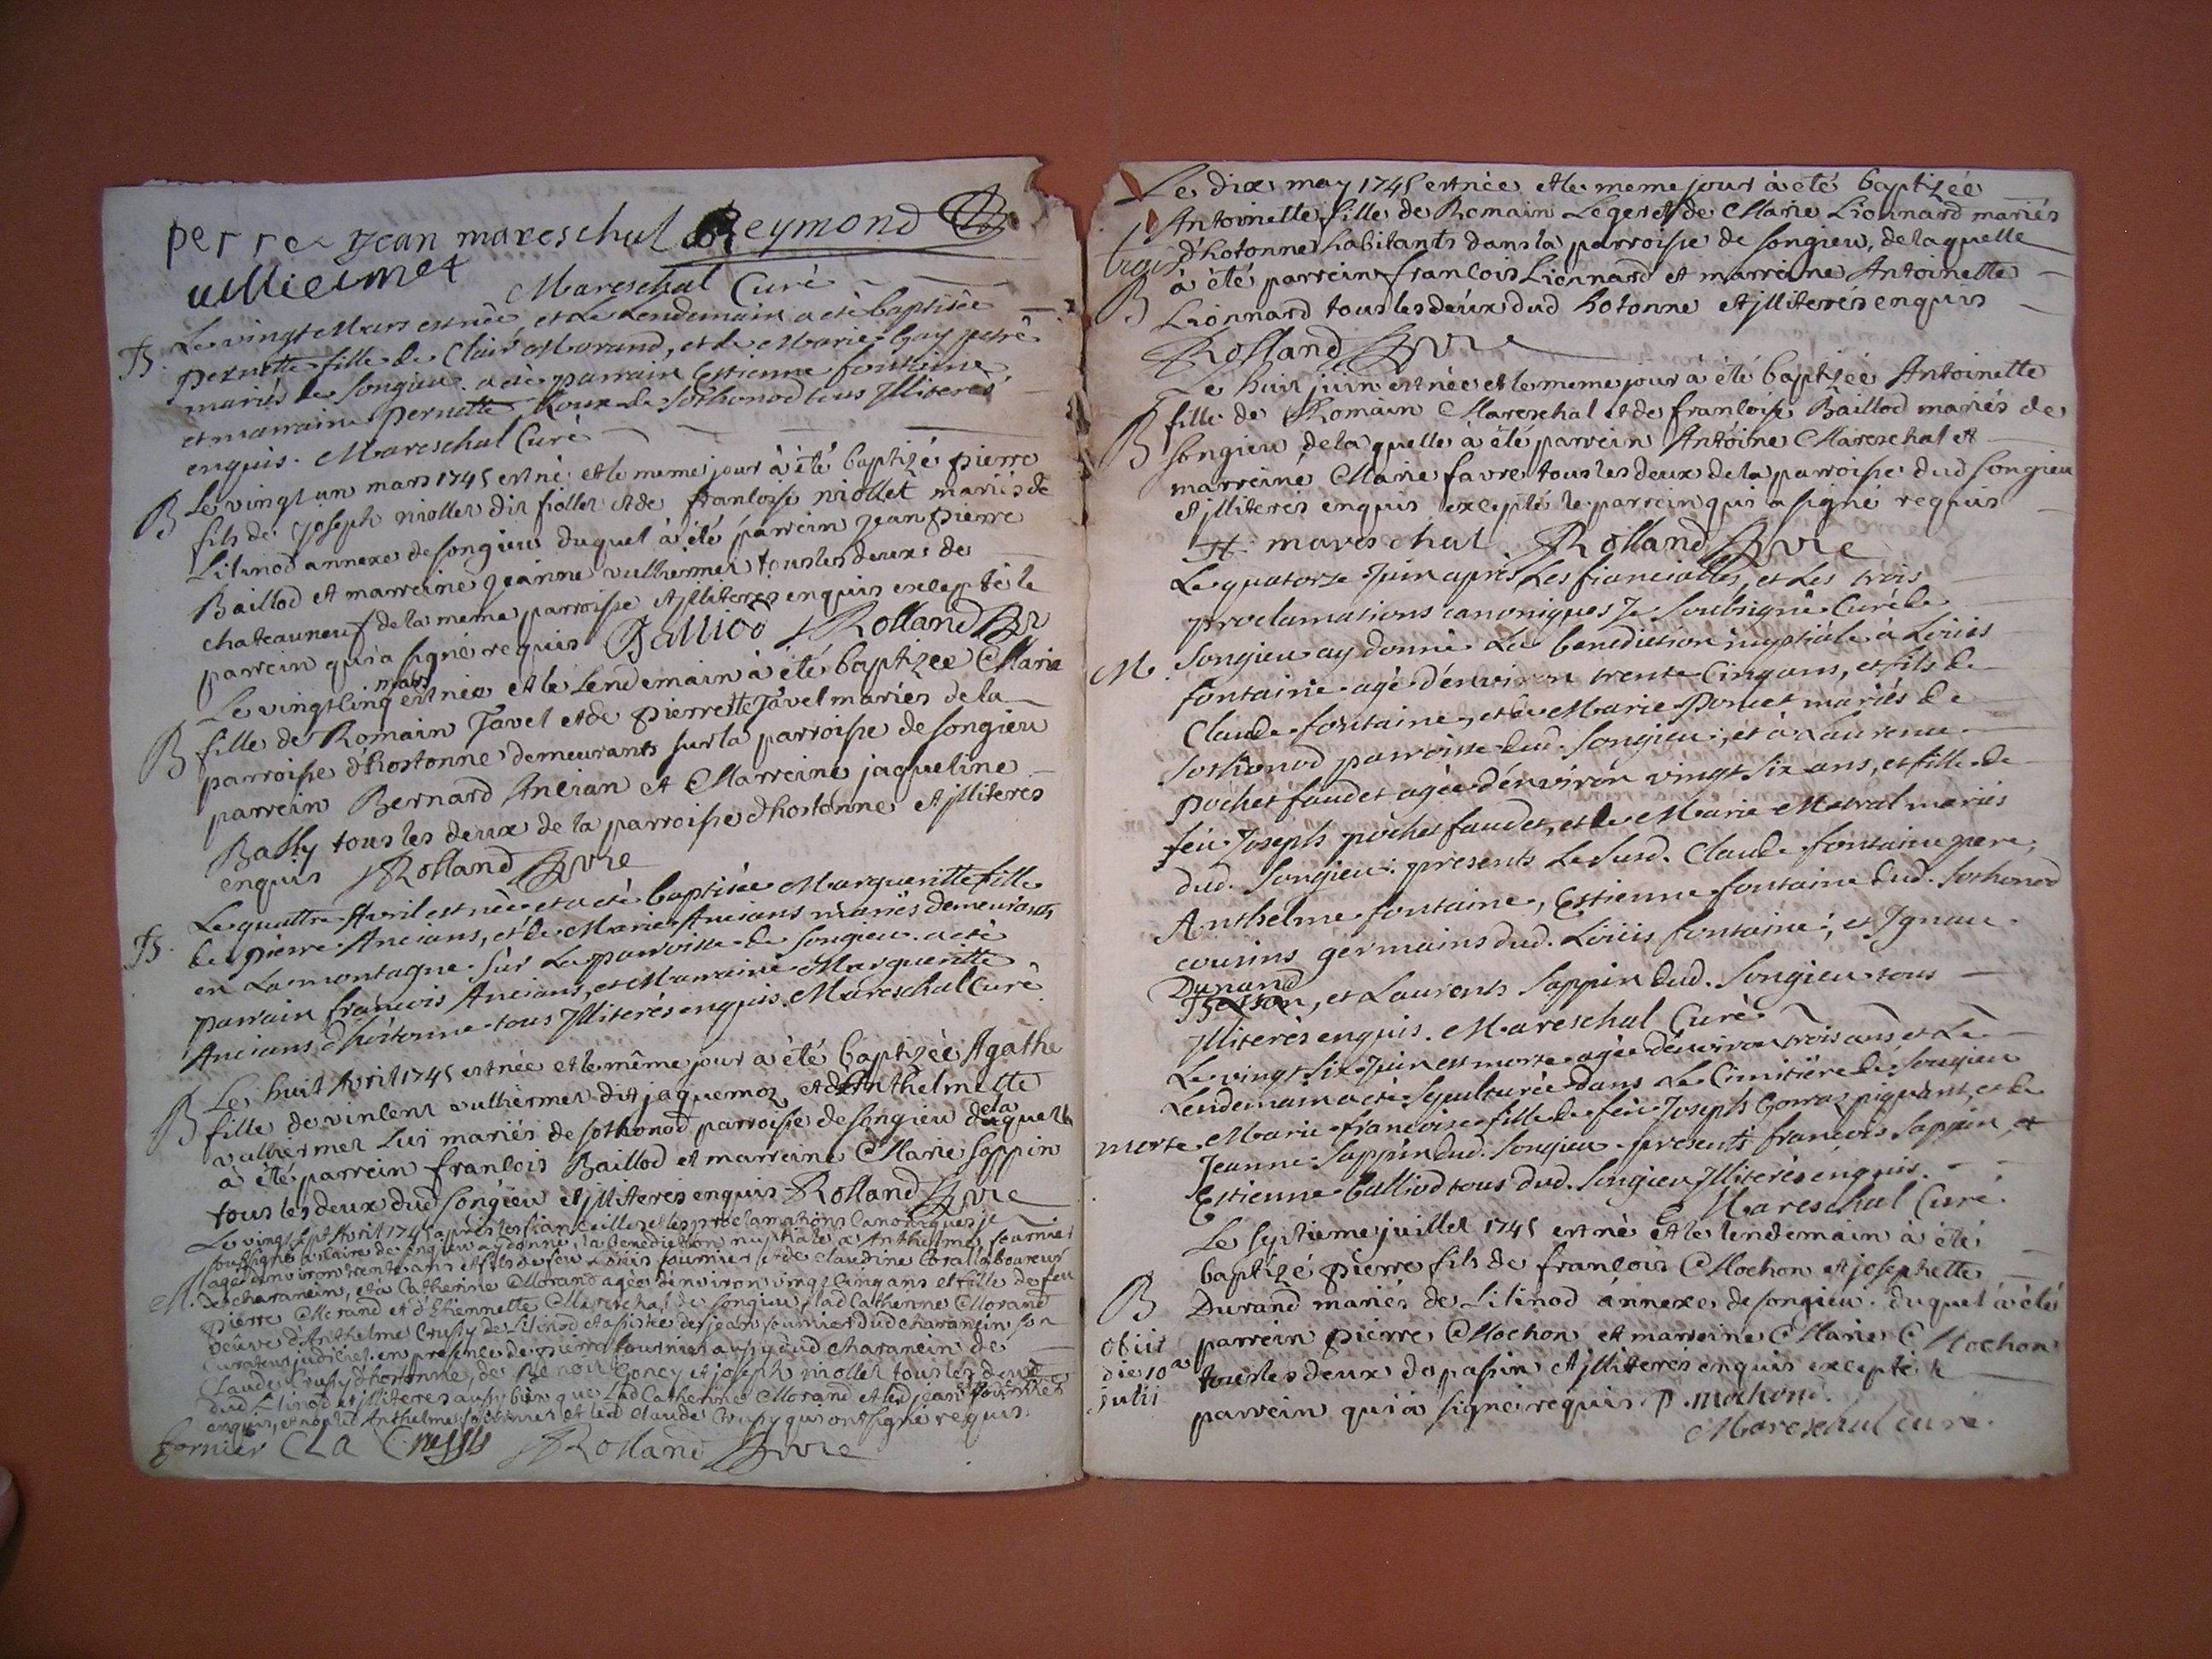 perre jean mareschal Reymond
uilliermet
Mareschal Curé
Le vingt Mars est née, et Le Lendemain a eté baptisée
B. pernette fille de Clair Morand, et de Marie Gay petré
mariés de Songieu. a été parrain Estienne fontaine
et marraine pernette Roux de Sothonod tous Illiterés
enquis. Mareschal Curé
B Le vingt un mars 1745 est né et le meme jour à été baptizé pierre
fils de Joseph niollet dit fiollet et de françoise niollet mariés de
Lilinod annexe de songieu duquel à été parrein jean pierre
Baillod et marreine jeanne vulliermet tous les deux de
chateauneuf de la meme parroisse et jlliteres enquis excepté le
parrein qui a signé requis Balliod Rolland vre
mars
Le vingt cinq est née et le Lendemain à été baptizée Marie
B fille de Romain Javel et de pierrette Javel mariés de la
parroisse d'hostonne demeurants sur la parroisse de songieu
parrein Bernard Ancian et Marreine jaqueline
Bally tous les deux de la parroisse d'hostonne et jlliteres
enquis Rolland vre
Le quattre Avril est née et a eté baptisée Margueritte fille
B. de pierre Ancians, et de Marie Ancians mariés demeurants
en La montagne sur La parroisse de Songieu. a eté
parrain françois Ancians, et Marraine Margueritte
Ancians d'hôtonne tous Illiterés enquis. Mareschal Curé
Le huit Avril 1745 est née et le même jour à été baptizée Agathe
B fille de vincent vulliermet dit jaquemoz et de Anthelmette
vulliermet Lui mariés de sothonod parroisse de songieu de laquelle
à été parrein françois Baillod et marreine Marie Sappin
tous les deux dud songieu et jlliteres enquis Rolland vre
Le vingt sept Avril 1745 apres les fiancailles et les proclamations Canoniques je
soussigné vicaire de songieu ay donné la benediction nuptiale a Anthelme fournier
agé d'environ trente ans et fils de feu Louis fournier et de Claudine Coral laboureur
M. de charancin, et à Catherine Morand agée d'environ vingt cinq ans et fille de feu
pierre Morand et d'Etiennette Mareschal de songieu lad Catherine Morand
veuve d'Anthelme Crussy de Lilinod et assistée de jean fournier dud charancin son
Curateur judiciel. en presence de pierre fournier aussy dud charancin de
Claude Crussy d'hotonne, de Benoit Goncy et joseph niollet tous les deux
dud Lilinod et jlliteres aussy bien que lad Catherine Morand et led jean fournier
enquis, et non led Anthelme fournier et led Claude Crussy qui ont signé requis
fornier Cla Crussy Rolland vre
Le dix may 1745 est née et le meme jour à été baptizée
Antoinette fille de Romain Leger et de Marie Lionnard mariés
trois d'hotonne habitants dans la parroisse de songieu, de laquelle
à été parrein françois Lionnard et marreine Antoinette
B Lionnard tous les deux dud hotonne et jlliterés enquis
Rolland vre
Le huit juin est née et le meme jour à été baptizée Antoinette
fille de Romain Mareschal et de françoise Baillod mariés de
B songieu de la quelle à été parrein Antoine Mareschal et
marreine Marie favre tous les deux de la parroisse dud songieu
et jlliterés enquis excepté le parrein qui a signé requis
A mareschal Rolland vre
Le quatorze Juin après Les fiancialles, et Les trois
proclamations canoniques Je Soubsigné Curé de
Songieu ay donné La benediction nuptiale à Loüis
M. fontaine agé d'environ trente Cinq ans, et fils de
Claude fontaine, et de Marie Poncet mariés de
Sothonod parroisse dud. Songieu, et à Laurence
pochet faudet agée d'environ vingt Six ans, et fille de
feu Joseph pochet faudet, et de Marie Metral mariés
dud. Songieu: presents Le Susd. Claude fontaine pere,
Anthelme fontaine, Estienne fontaine dud. Sothonod
cousins germains dud. Loüis fontaine, et Ignace
Dunand
et Laurents Sappin dud. Songieu tous
Illiterés enquis. Mareschal Curé
Le vingt Six Juin est morte agée d'environ trois ans et Le
Lendemain a eté Sepulturée dans Le Cimitiere de Songieu
morte Marie françoise fille de feu Joseph Gorraz piquant, et de
Jeanne Sappin dud. Songieu. presents françois Sappin et
Estienne balliod tous dud. Songieu Illiterés enquis.
Mareschal Curé.
Le septieme juillet 1745 est né et le lendemain à été
baptizé pierre fils de françois Mochon et josephette
B Durand mariés de Lilinod annexe de songieu. duquel à été
obiit parrein pierre Mochon et marreine Marie Mochon
die 10a tous les deux de passin et jlliterés enquis excepté le
julii parrein qui à signé requis. P. mochon.
Mareschal curé.